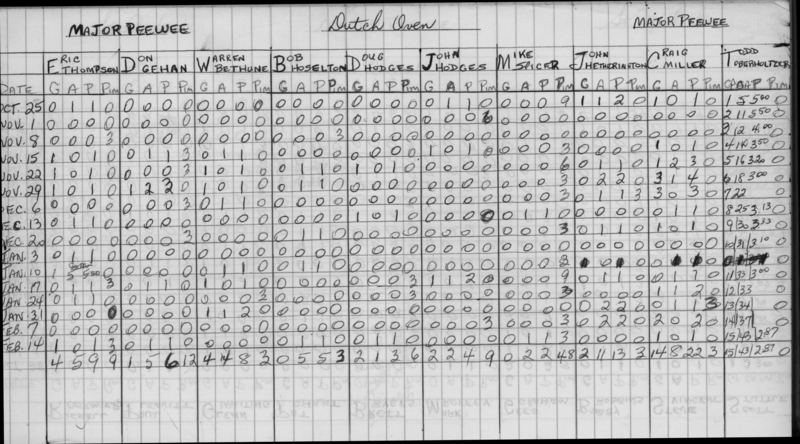 MAJOR PEEWEE Dutch Oven MAJOR PEEWEE
ERIC THOMPSON DON GEHAN WARREN BETHUNE BOB HOSELTON DOUG HODGES JOHN HODGES MIKE SPICER JOHN HETHERINGTON CRAIG MILLER TODD OBERHOLTZER
DATE G A P Pim G A P Pim G A P Pim G A P Pim G A P Pim G A P Pim G A P Pim G A P Pim G A P Pim GA AP Pim
OCT. 25 0 1 1 0 0 0 0 0 0 0 0 0 0 0 0 0 0 0 0 0 0 1 1 0 0 0 0 9 1 1 2 0 1 0 1 0 1 5 5.00 0
NOV. 1 0 0 0 0 0 0 0 0 0 0 0 0 0 0 0 0 0 0 0 0 0 0 0 6 0 0 0 0 0 0 0 0 0 0 0 0 2 11 5.50 0
NOV. 8 0 0 0 3 0 0 0 0 0 0 0 0 0 0 0 3 0 0 0 0 0 0 0 0 0 0 0 0 0 0 0 0 0 0 0 0 3 12 4.00 0
NOV. 15 1 0 1 0 0 1 1 3 0 1 1 0 0 0 0 0 0 0 0 0 1 0 1 0 0 0 0 3 0 0 0 0 1 0 1 0 4 14 3.50 0
NOV. 22 1 0 1 0 0 0 0 3 1 0 1 0 0 1 1 0 1 0 1 0 0 0 0 0 0 0 0 6 0 1 1 0 1 2 3 0 5 16 3.20 0
NOV. 29 1 0 1 0 1 2 2 0 1 0 1 0 0 1 1 0 0 0 0 0 0 0 0 0 0 0 0 3 0 2 2 0 3 1 4 0 6 18 3.00 0
DEC. 6 0 0 0 0 0 0 0 3 0 1 1 0 0 0 0 0 0 0 0 0 0 0 0 0 0 0 0 3 0 1 1 3 3 0 3 0 7 22
DEC. 13 0 1 1 0 0 0 0 0 0 0 0 0 0 0 0 0 1 0 1 0 0 0 0 0 0 1 1 0 0 0 0 0 0 1 1 0 8 25 3.13 0
DEC. 20 0 0 0 0 0 0 0 3 0 0 0 0 0 1 1 0 0 0 0 0 0 0 0 0 0 0 0 3 0 1 1 0 1 0 1 0 9 30 3.33 0
JAN. 3 0 1 1 0 0 0 0 0 0 0 0 0 0 0 0 0 0 0 0 0 0 0 0 0 0 0 0 0 0 0 0 0 0 0 0 0 10 31 3.10 0
JAN. 10 1 5 5.00 0 0 0 0 0 0 1 1 0 0 0 0 0 0 0 0 0 0 0 0 0 0 0 0
JAN. 17 0 1 1 3 0 1 1 0 1 0 1 0 0 0 0 0 0 0 0 3 1 1 2 0 0 0 0 9 0 1 1 0 0 1 1 0 11 33 3.00 0
JAN 24 0 1 1 0 0 0 0 0 0 0 0 3 0 0 0 0 0 0 0 3 0 0 0 0 0 0 0 3 0 0 0 0 1 1 2 0 12 33
JAN. 31 0 0 0 0 0 0 0 0 1 1 2 0 0 0 0 0 0 0 0 0 0 0 0 0 0 0 0 0 0 2 2 0 0 1 1 3 13 34
FEB. 7 0 0 0 0 0 0 0 0 0 0 0 0 0 0 0 0 0 0 0 0 0 0 0 3 0 0 0 3 0 2 2 0 2 0 2 0 14 37
FEB. 14 1 0 1 3 0 1 1 0 0 0 0 0 0 0 0 0 0 1 1 0 0 0 0 0 0 1 1 3 0 0 0 0 1 0 1 0 15 43 2.87 0
4 5 9 9 1 5 6 12 4 4 8 3 0 5 5 3 2 1 3 6 2 2 4 9 0 2 2 48 2 11 13 3 14 8 22 3 15 43 2.87 0